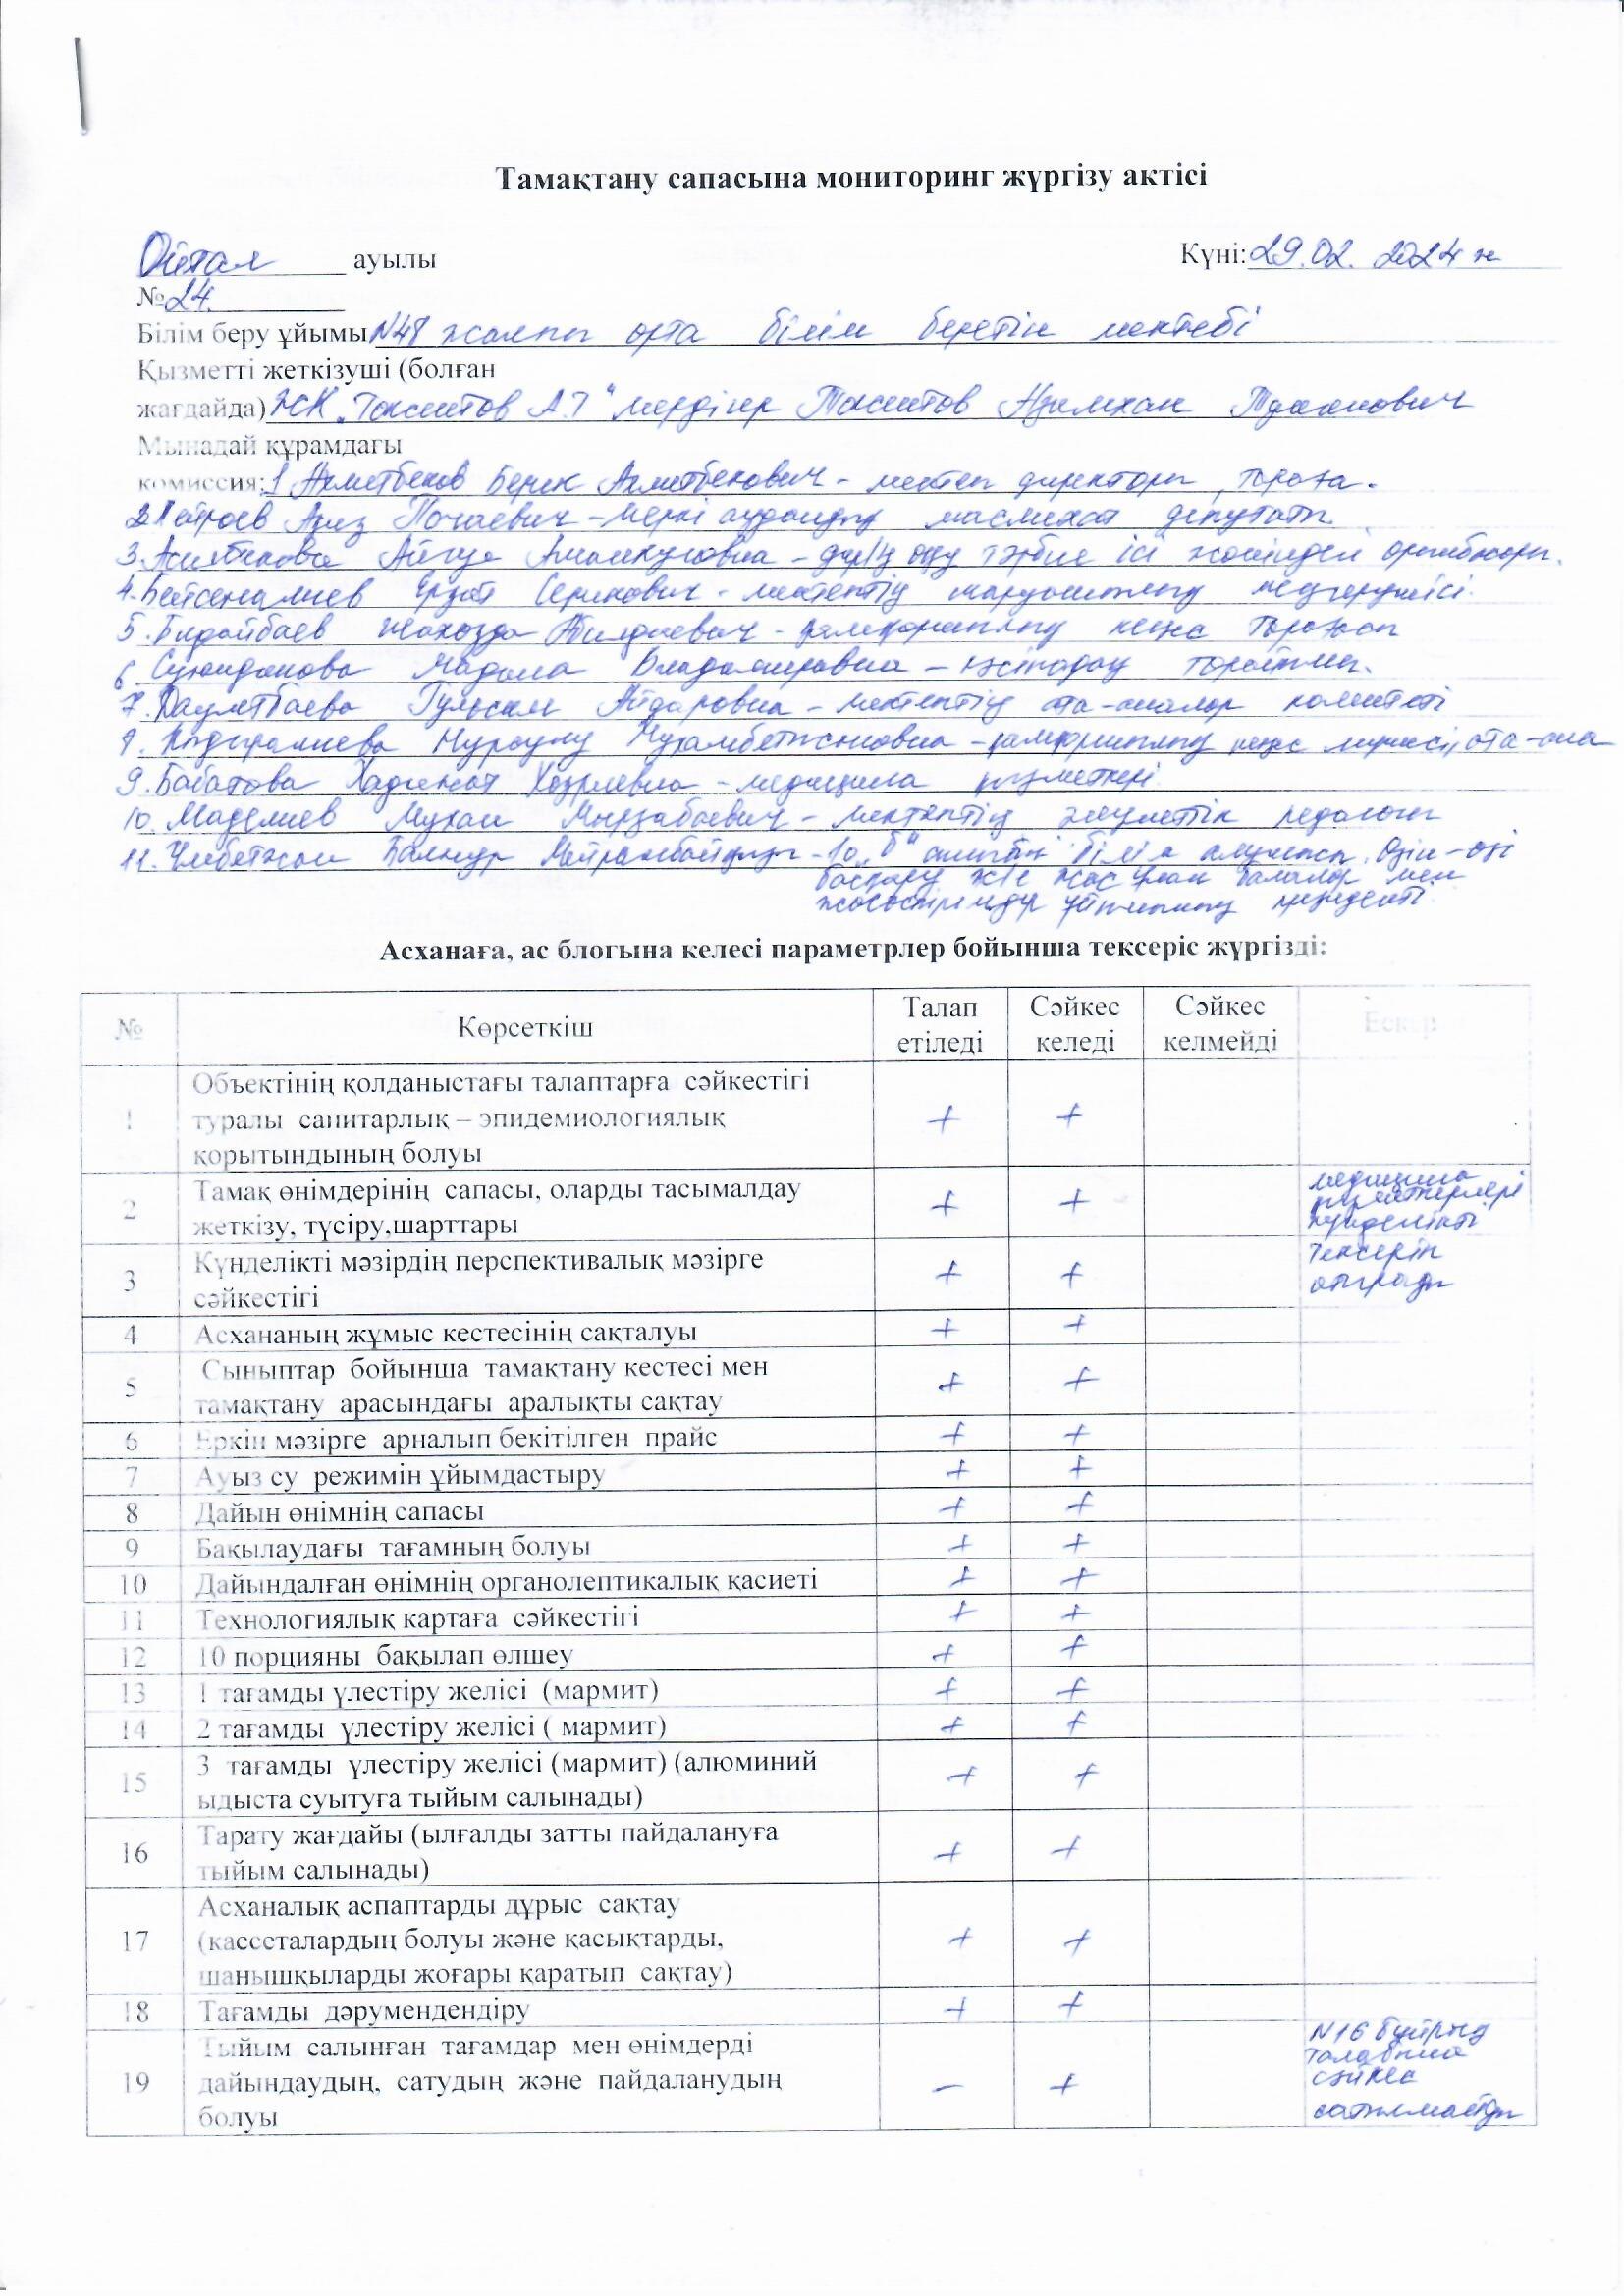 Тамақтану сапасына мониторинг жүргізу актісі
Ойтал ауылы Күні: 29.02. 2024 ж
№ 24.
Білім беру ұйымы N48 жалпы орта білім беретін мектебі
Қызметті жеткізуші (болған
жағдайда) ЖК "Токситов А.Т" мердігер Токситов Азимхан
Мынадай құрамдағы
комиссия: 1 Ахметбеков Берик Ахметбекович - мектеп директоры, төраға.
2. Азиз - Меркі аудандық маслихат депутаты
3. Айгуль Аманкуловна - дир/ң оқу тәрбие ісі жөніндегі орынбасары.
4. Бейсеналиев Ерзат Серикович - мектептің шаруашылық меңгерушісі.
5. Бидайбаев - қамқоршылық кеңес төрағасы
6. Мадина Владимировна - кәсіподақ төрайымы.
7. Даулетбаева Гульсим Айдаровна - мектептің ата-аналар комитеті
8. Нурсулу Мухамбетжановна - қамқоршылық кеңес мүшесі, ата-ана
9. Бабатова Хадижат - медицина қызметкері
10. Маделиев Мухан Мырзабаевич - мектептің әлеуметтік педагогы
11. Балнур - 10 "б" сынып білім алушысы. Өзін-өзі
басқару және жас ұлан балалар мен
жасөспірімдер ұйымының президенті.
Асханаға, ас блогына келесі параметрлер бойынша тексеріс жүргізді:
№ Көрсеткіш Талап етіледі Сәйкес келеді Сәйкес келмейді Ескер
1 Объектінің қолданыстағы талаптарға сәйкестігі
туралы санитарлық – эпидемиологиялық + +
қорытындының болуы
2 Тамақ өнімдерінің сапасы, оларды тасымалдау + + медицина қызметкерлері
жеткізу, түсіру,шарттары күнделікті
3 Күнделікті мәзірдің перспективалық мәзірге + + тексеріп
сәйкестігі отырады
4 Асхананың жұмыс кестесінің сақталуы + +
5 Сыныптар бойынша тамақтану кестесі мен + +
тамақтану арасындағы аралықты сақтау
6 Еркін мәзірге арналып бекітілген прайс + +
7 Ауыз су режимін ұйымдастыру + +
8 Дайын өнімнің сапасы + +
9 Бақылаудағы тағамның болуы + +
10 Дайындалған өнімнің органолептикалық қасиеті + +
11 Технологиялық картаға сәйкестігі + +
12 10 порцияны бақылап өлшеу + +
13 1 тағамды үлестіру желісі (мармит) + +
14 2 тағамды үлестіру желісі ( мармит) + +
15 3 тағамды үлестіру желісі (мармит) (алюминий + +
ыдыста суытуға тыйым салынады)
16 Тарату жағдайы (ылғалды затты пайдалануға + +
тыйым салынады)
17 Асханалық аспаптарды дұрыс сақтау
(кассеталардың болуы және қасықтарды, + +
шанышқыларды жоғары қаратып сақтау)
18 Тағамды дәрумендендіру + +
19 Тыйым салынған тағамдар мен өнімдерді N16 бұйрық талабына
дайындаудың, сатудың және пайдаланудың – + сәйкес
болуы сатылмайды